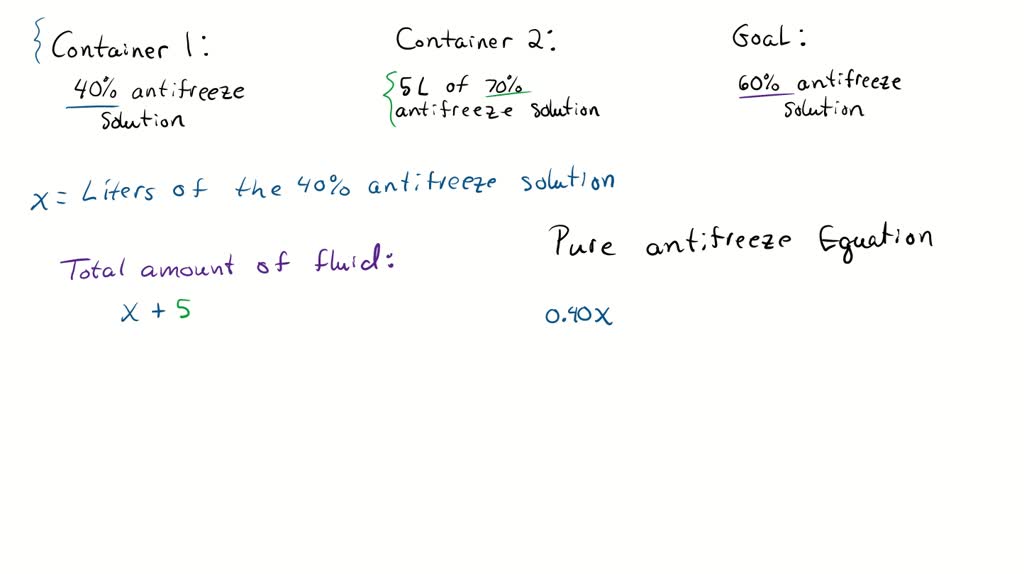 Container 1:
40% antifreeze
solution
Container 2:
5L of 70%
antifreeze solution
Goal:
60% antifreeze
solution
x = Liters of the 40% antifreeze solution
Total amount of fluid:
x + 5
Pure antifreeze Equation
0.40x